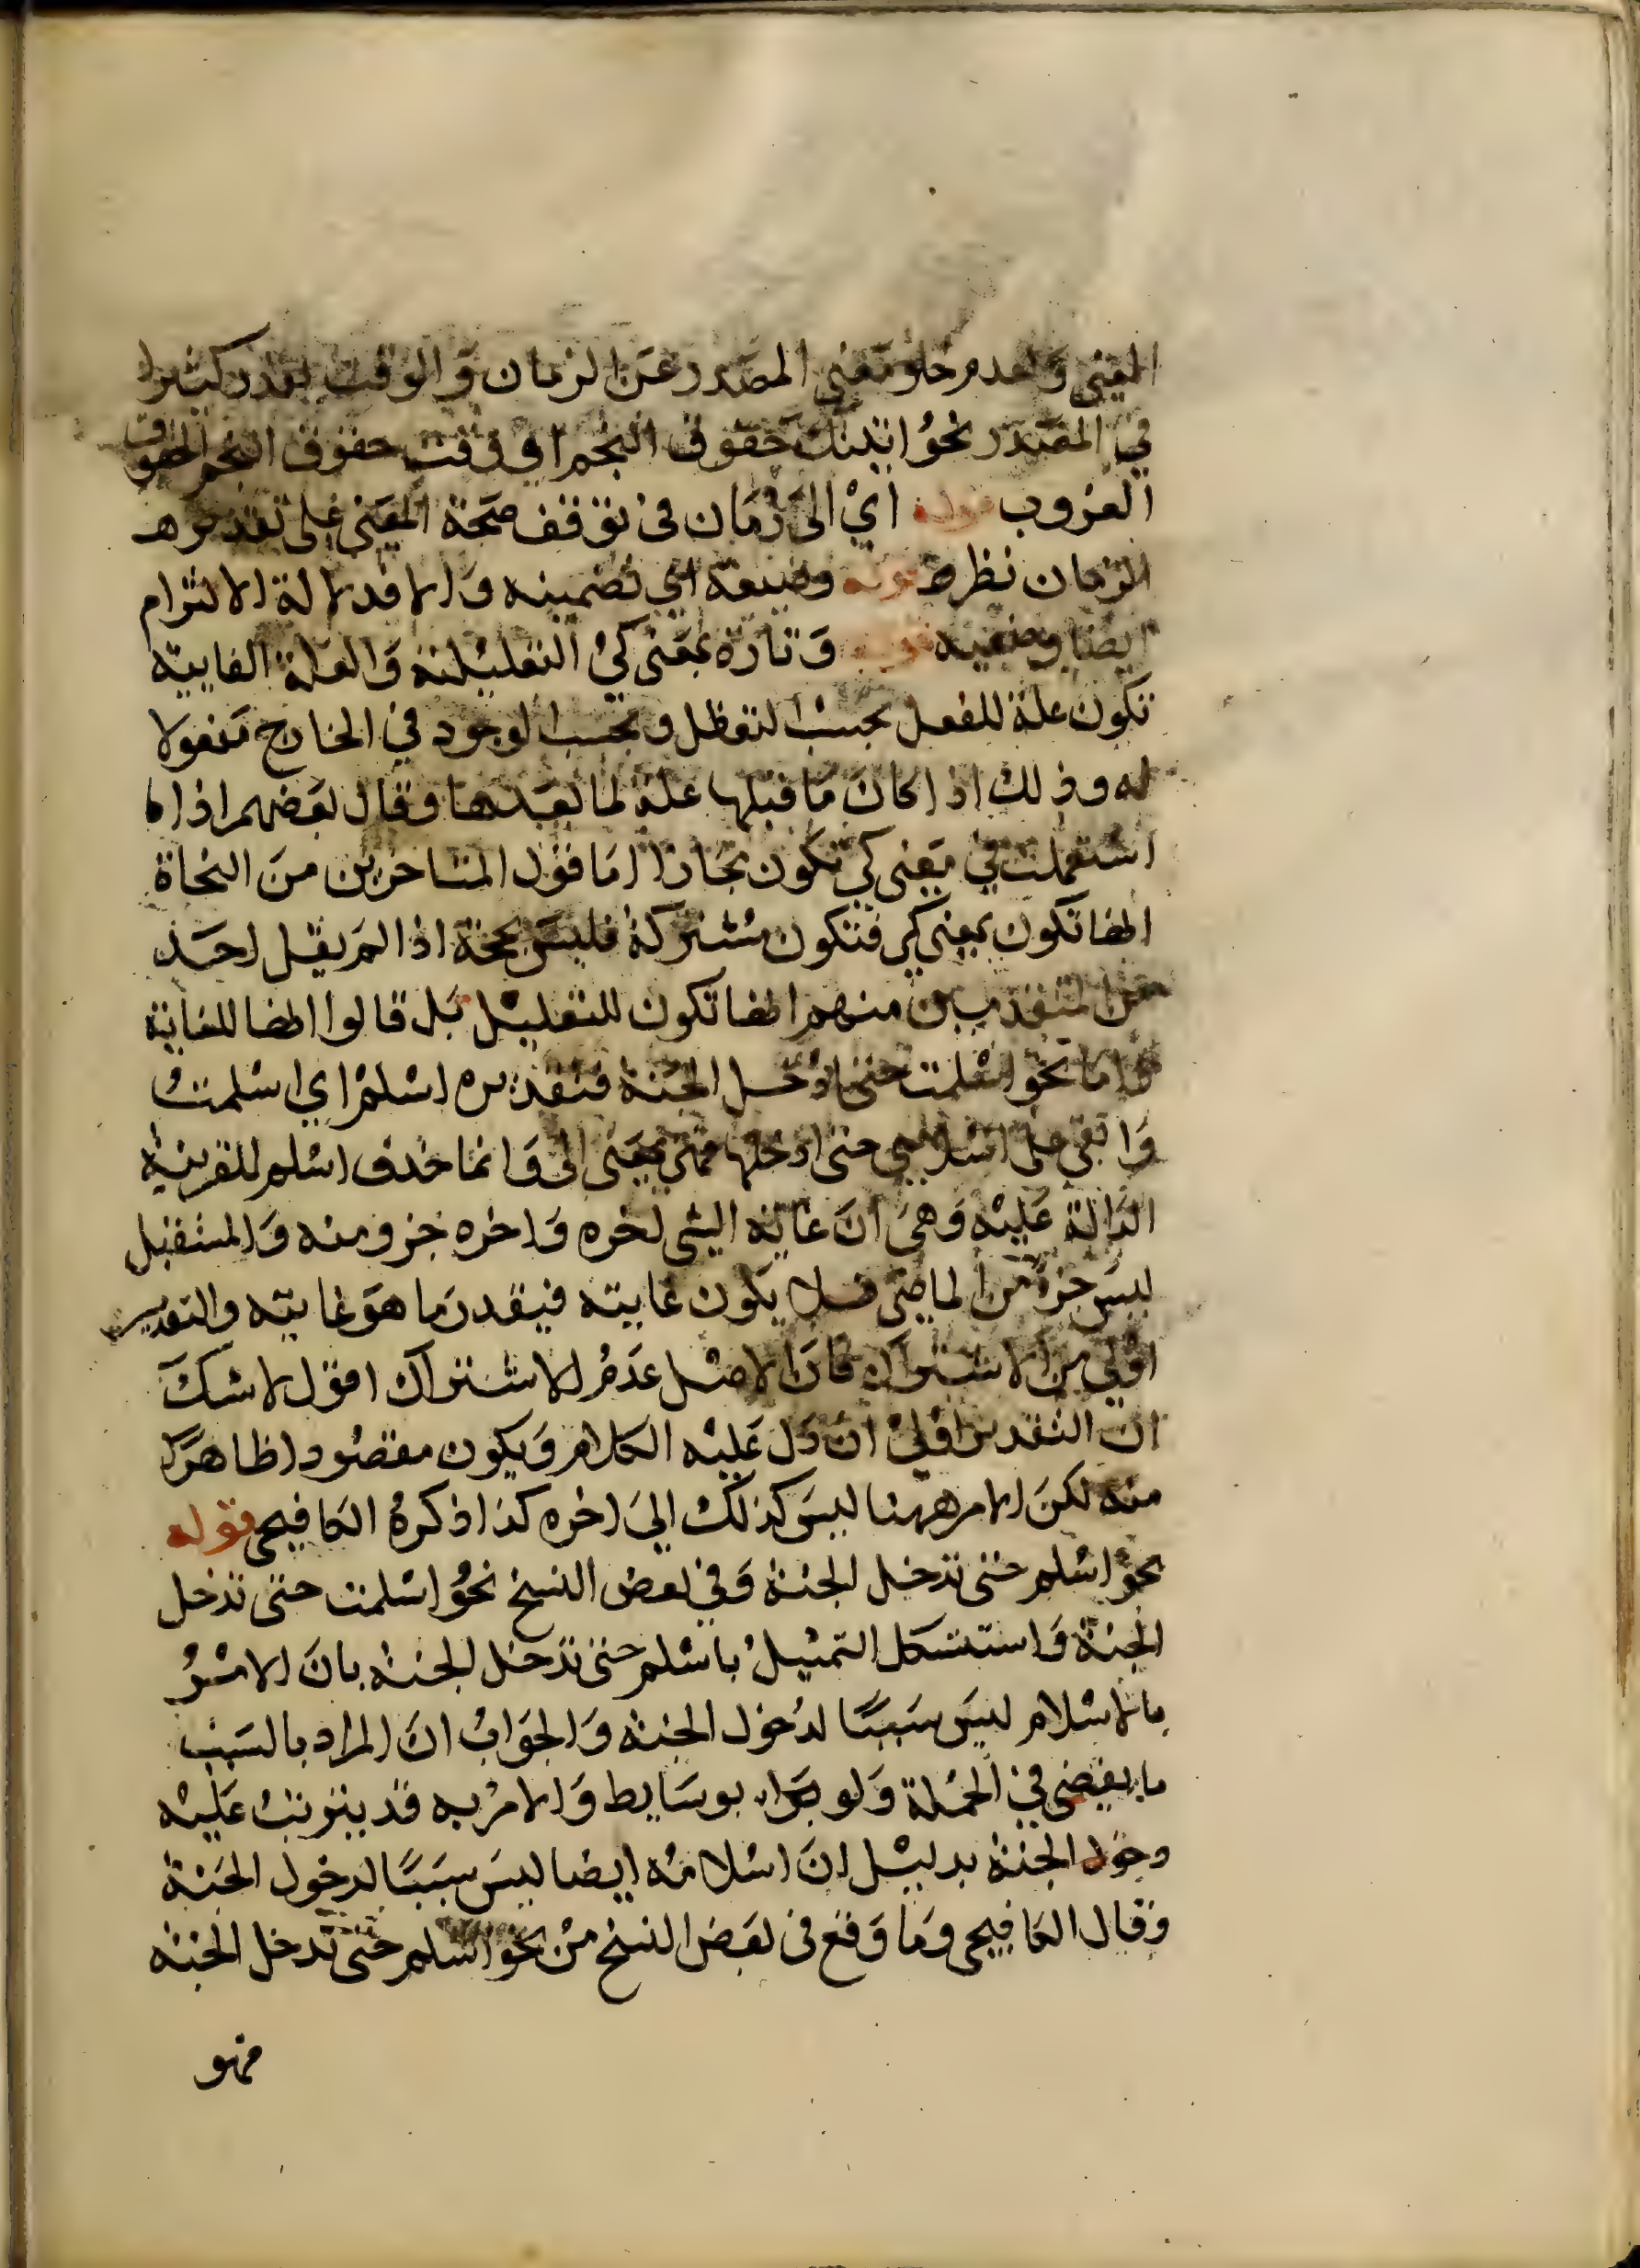 المعنى ولعدم خلو معنى المصدر عن الزمان والوقت يقدر كثيرا
في المصدر نحو اتيتك خفوق النجم اي وقت خفوق النجم الخفوق
الغروب قوله اي الى زمان في توقف صحة المعنى على تقدير هـ
الزمان نظر ص قوله وضعية اي تضمينه والا فدلالة الالتزام
ايضا وضعيه قوله وتارة بمعنى كي التعليلية والعلة الغايية
تكون علة للفعل بحسب التعقل وبحسب الوجود في الخارج معلولا
له وذلك اذا كان ما قبلها علة لما بعدها وقال بعضهم اذا
استعملت في معنى كي تكون مجازا اما قول المتاخرين من النحاة
انها تكون بمعنى كي فتكون مشتركة فليس بحجة اذا لم يقل احد
من المتقدمين منهم انها تكون للتعليل بل قالوا انها للغاية
واما نحو اسلمت حتى ادخل الجنة فتقديره اسلم اي اسلمت
وابقى على اسلامي حتى ادخلها فهي بمعنى الى وانما حذف اسلم للقرينة
الدالة عليه وهي ان غاية الشي اخره واخره جزو منه والمستقبل
ليس جزء من الماضي فلا يكون غايته فيقدر ما هو غايته والتقدير
اولى من الاشتراك فان الاصل عدم الاشتراك اقول لا شك
ان التقدير اولى ان دل عليه الكلام ويكون مقصودا ظاهرا
منه لكن الامر ههنا ليس كذلك الى اخره كذا ذكره الكافيجي قوله
نحو اسلم حتى تدخل الجنة وفي بعض النسخ نحو اسلمت حتى تدخل
الجنة واستشكل التمثيل باسلم حتى تدخل الجنة بان الامر
بالاسلام ليس سببا لدخول الجنة والجواب ان المراد بالسبب
ما يفضي في الجملة ولو بوسايط والامر به قد يترتب عليه
دخول الجنة بدليل ان اسلامه ايضا ليس سببا لدخول الجنة
وقال الكافيجي وما وقع في بعض النسخ من نحو اسلم حتى تدخل الجنة
فهو